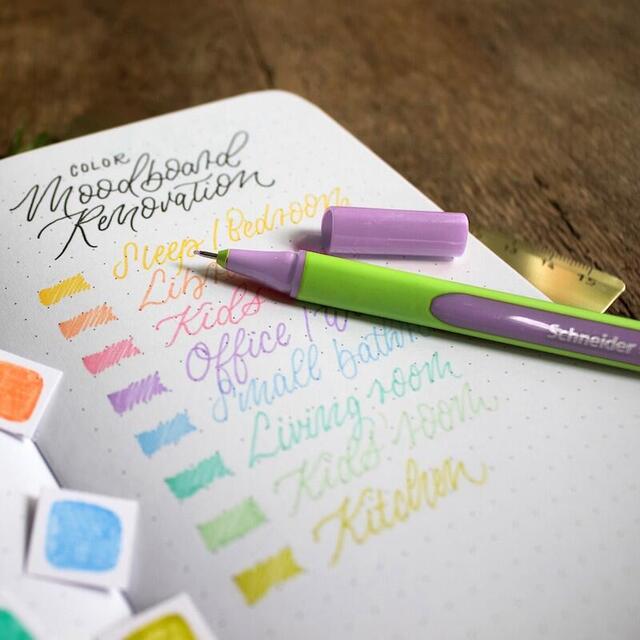 COLOR
Moodboard
Renovation
Sleep / Bedroom
Kids
Office /
Small
Living room
Kids' room
Kitchen
Schneider
14 15